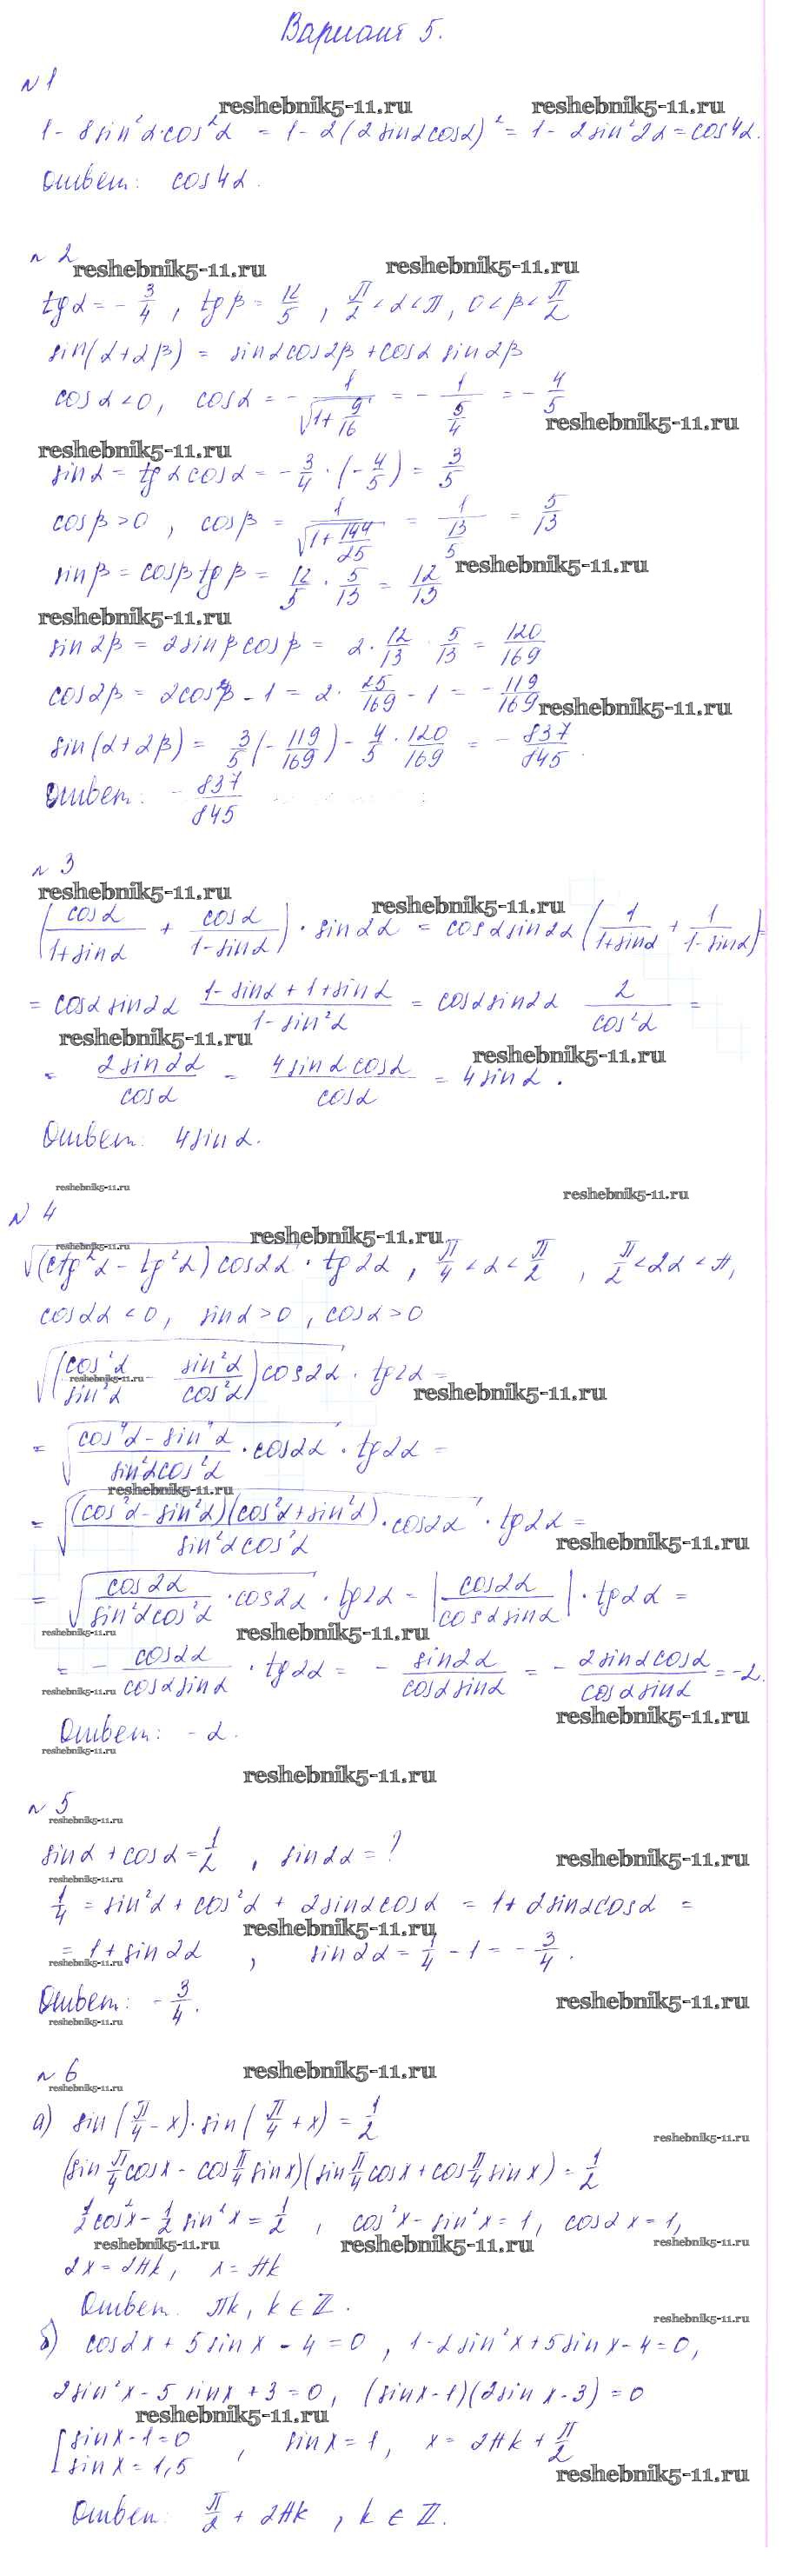 Вариант 5.
№ 1
reshebnik5-11.ru reshebnik5-11.ru
1 - 8sin²α·cos²α = 1 - 2(2sinαcosα)² = 1 - 2sin²2α = cos4α.
Ответ: cos4α.
№ 2
reshebnik5-11.ru reshebnik5-11.ru
tgα = -3/4, tgβ = 12/5, π/2 < α < π, 0 < β < π/2
sin(α+2β) = sinαcos2β + cosα sin2β
cosα < 0, cosα = -1/√(1+9/16) = -1/(5/4) = -4/5
reshebnik5-11.ru
reshebnik5-11.ru
sinα = tgαcosα = -3/4 · (-4/5) = 3/5
cosβ > 0, cosβ = 1/√(1+144/25) = 1/(13/5) = 5/13
sinβ = cosβtgβ = 12/5 · 5/13 = 12/13
reshebnik5-11.ru
reshebnik5-11.ru
sin2β = 2sinβcosβ = 2 · 12/13 · 5/13 = 120/169
cos2β = 2cos²β - 1 = 2 · 25/169 - 1 = -119/169
reshebnik5-11.ru
sin(α+2β) = 3/5(-119/169) - 4/5 · 120/169 = -837/845.
Ответ: -837/845
№ 3
reshebnik5-11.ru reshebnik5-11.ru
(cosα/(1+sinα) + cosα/(1-sinα)) · sin2α = cosαsin2α(1/(1+sinα) + 1/(1-sinα)) =
= cosαsin2α (1-sinα+1+sinα)/(1-sin²α) = cosαsin2α 2/cos²α =
reshebnik5-11.ru reshebnik5-11.ru
= 2sin2α/cosα = 4sinα·cosα/cosα = 4sinα.
Ответ: 4sinα.
reshebnik5-11.ru reshebnik5-11.ru
№ 4
reshebnik5-11.ru reshebnik5-11.ru
√((ctg²α - tg²α)cos2α) · tg2α, π/4 < α < π/2, π/2 < 2α < π,
cos2α < 0, sinα > 0, cosα > 0
√((cos²α/sin²α - sin²α/cos²α)cos2α) · tg2α =
reshebnik5-11.ru reshebnik5-11.ru
= √((cos⁴α - sin⁴α)/(sin²αcos²α) · cos2α) · tg2α =
reshebnik5-11.ru
= √((cos²α - sin²α)(cos²α + sin²α)/(sin²αcos²α) · cos2α) · tg2α =
reshebnik5-11.ru
= √(cos2α/(sin²αcos²α) · cos2α) · tg2α = |cos2α/(cosαsinα)| · tg2α =
reshebnik5-11.ru reshebnik5-11.ru
= -cos2α/(cosαsinα) · tg2α = -sin2α/(cosαsinα) = -2sinαcosα/(cosαsinα) = -2.
reshebnik5-11.ru reshebnik5-11.ru
Ответ: -2.
reshebnik5-11.ru
reshebnik5-11.ru
№ 5
reshebnik5-11.ru
sinα + cosα = 1/2, sin2α = ?
reshebnik5-11.ru
reshebnik5-11.ru
1/4 = sin²α + cos²α + 2sinαcosα = 1 + 2sinαcosα =
reshebnik5-11.ru
= 1 + sin2α, sin2α = 1/4 - 1 = -3/4.
reshebnik5-11.ru
Ответ: -3/4.
reshebnik5-11.ru
reshebnik5-11.ru
№ 6
reshebnik5-11.ru
reshebnik5-11.ru
а) sin(π/4 - x)·sin(π/4 + x) = 1/2
reshebnik5-11.ru
(sin π/4 cosx - cos π/4 sinx)(sin π/4 cosx + cos π/4 sinx) = 1/2
1/2cos²x - 1/2 sin²x = 1/2, cos²x - sin²x = 1, cos2x = 1,
reshebnik5-11.ru reshebnik5-11.ru reshebnik5-11.ru
2x = 2πk, x = πk
Ответ. πk, k ∈ Z.
reshebnik5-11.ru
б) cos2x + 5sinx - 4 = 0, 1 - 2sin²x + 5sinx - 4 = 0,
2sin²x - 5sinx + 3 = 0, (sinx - 1)(2sinx - 3) = 0
reshebnik5-11.ru
[sinx - 1 = 0, sinx = 1, x = 2πk + π/2
sinx = 1,5
reshebnik5-11.ru
Ответ: π/2 + 2πk, k ∈ Z.